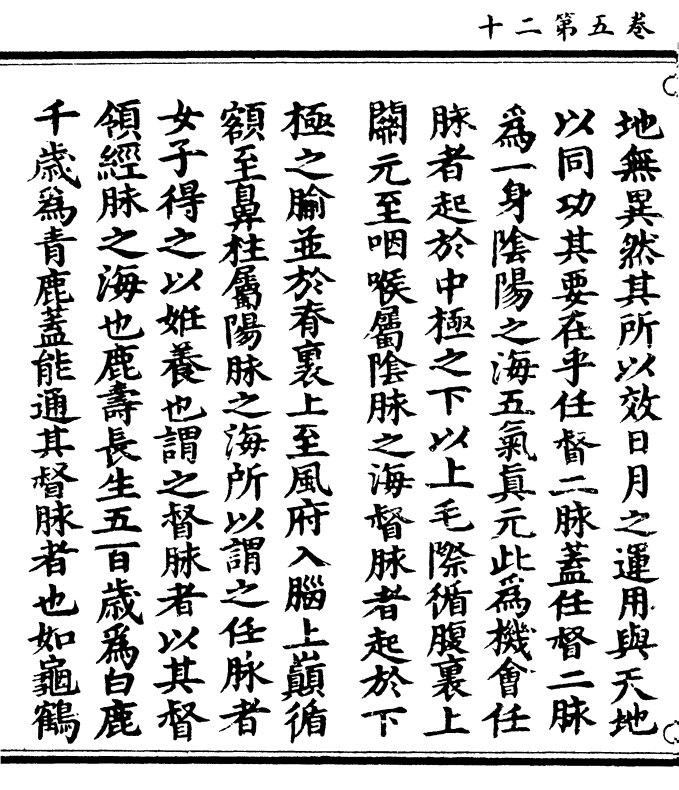 卷五第二十
地無異然其所以效日月之運用與天地
以同功其要在乎任督二脉蓋任督二脉
為一身陰陽之海五氣真元此為機會任
脉者起於中極之下以上毛際循腹裏上
關元至咽喉屬陰脉之海督脉者起於下
極之腧並於脊裏上至風府入腦上巔循
額至鼻柱屬陽脉之海所以謂之任脉者
女子得之以姙養也謂之督脉者以其督
領經脉之海也鹿壽長生五百歲為白鹿
千歲為青鹿蓋能通其督脉者也如龜鶴